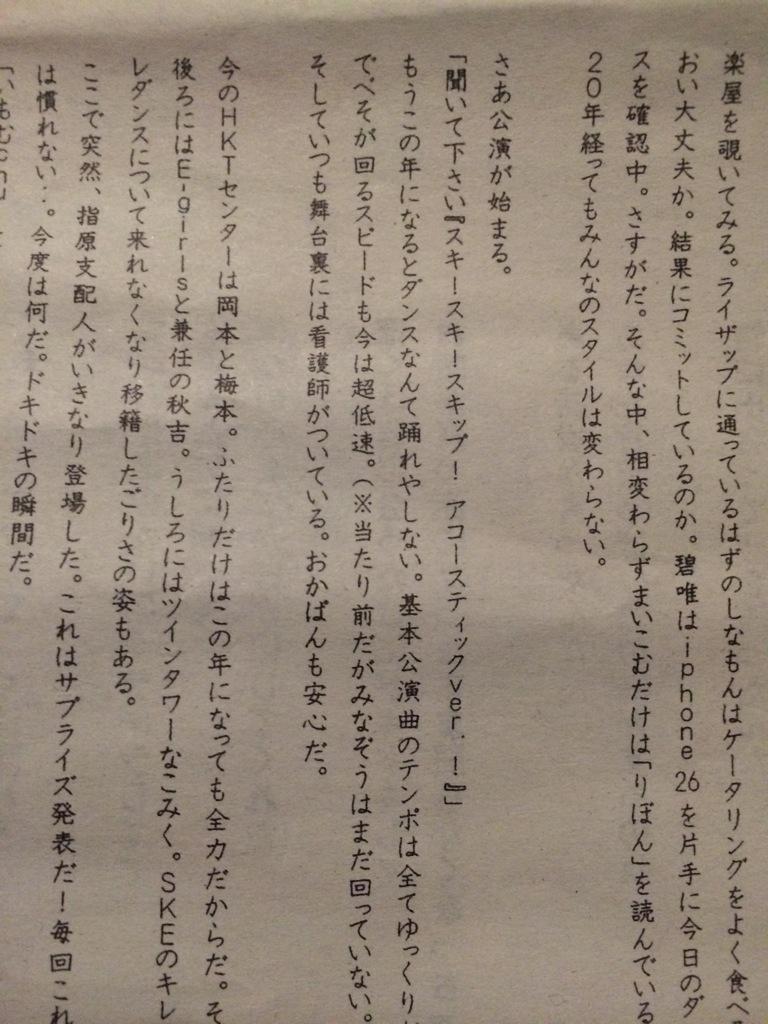 楽屋を覗いてみる。ライザップに通っているはずのしなもんはケータリングをよく食べ
おい大丈夫か。結果にコミットしているのか。碧唯はiphone26を片手に今日のダ
スを確認中。さすがだ。そんな中、相変わらずまいこむだけは「りぼん」を読んでいる
20年経ってもみんなのスタイルは変わらない。
さあ公演が始まる。
「聞いて下さい『スキ！スキ！スキップ！アコースティックver.！』」
もうこの年になるとダンスなんて踊れやしない。基本公演曲のテンポは全てゆっくり
でべそが回るスピードも今は超低速。（※当たり前だがみなぞうはまだ回っていない。
そしていつも舞台裏には看護師がついている。おかぱんも安心だ。
今のHKTセンターは岡本と梅本。ふたりだけはこの年になっても全力だからだ。そ
後ろにはE-girlsと兼任の秋吉。うしろにはツインタワーなこみく。SKEのキレ
レダンスについて来れなくなり移籍したごりさの姿もある。
ここで突然、指原支配人がいきなり登場した。これはサプライズ発表だ！毎回これ
は慣れない…。今度は何だ。ドキドキの瞬間だ。